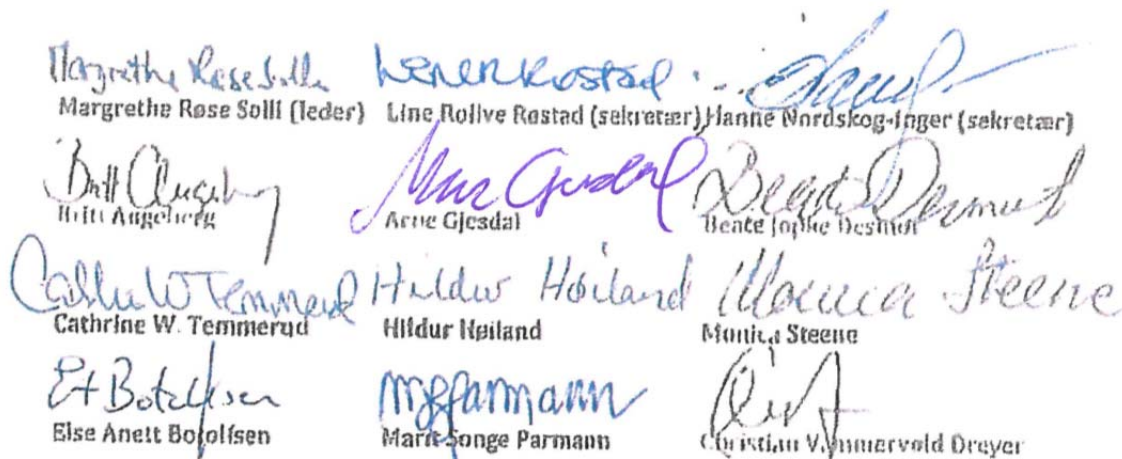 Margrethe Røse Solli
Margrethe Røse Solli (leder) Line Rolive Røstad (sekretær) Hanne Nordskog-Inger (sekretær)
Britt Augeberg
Britt Augeberg Arne Gjesdal Beate Desmot
Cathrine W Temmerud Hildur Høiland Monica Steene
Cathrine W. Temmerud Hildur Høiland Monica Steene
EA Botolfsen MSParmann
Else Anett Botolfsen Marit Songe Parmann Christian Dreyer